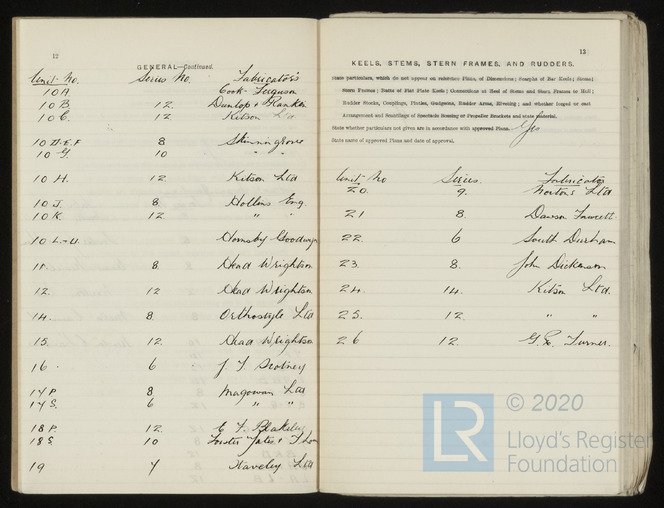 12
GENERAL—Continued.
Unit No. Series No. Fabricator's
10A Cook Ferguson
10 B. 12. Dunlop & Rankin
10 C. 12 Kitson Ltd
10 D.E.F 8 Skinningrove
10 G. 10 " "
10 H. 12 Kitson Ltd
10 J. 8 Hollins Eng.
10 K. 12 " "
10 L-U. Hornsby Goodwyn
11. 8. Head Wrightson
12. 12 Head Wrightson
14. 8. Orthostyle Ltd
15. 12. Head Wrightson
16. 6 J. T. Scotney
17 P. 8. Magowan Ltd
17 S. 6 " "
18 P. 12. Blakeley
18 S 10 Foster Yates &
19 7 Ltd
13
KEELS, STEMS, STERN FRAMES, AND RUDDERS.
State particulars, which do not appear on reference Plans, of Dimensions; Scarphs of Bar Keels; Stems;
Stern Frames; Butts of Flat Plate Keels; Connections of Heel of Stems and Stern Frames to Hull;
Rudder Stocks, Couplings, Pintles, Gudgeons, Rudder Arms, Riveting; and whether forged or cast
Arrangement and Scantlings of Spectacle Bossing or Propeller Brackets and state material.
State whether particulars not given are in accordance with approved Plans. Yes
State name of approved Plans and date of approval.
Unit No Series. Fabricator
20. 9. Mortons Ltd
21 8 Dawson Fawcett.
22. 6 South Durham
23. 8. John Dickinson
24. 14. Kitson Ltd.
25. 12. " "
26 12. G. R. Turner.
© 2020
LR
Lloyd's Register
Foundation